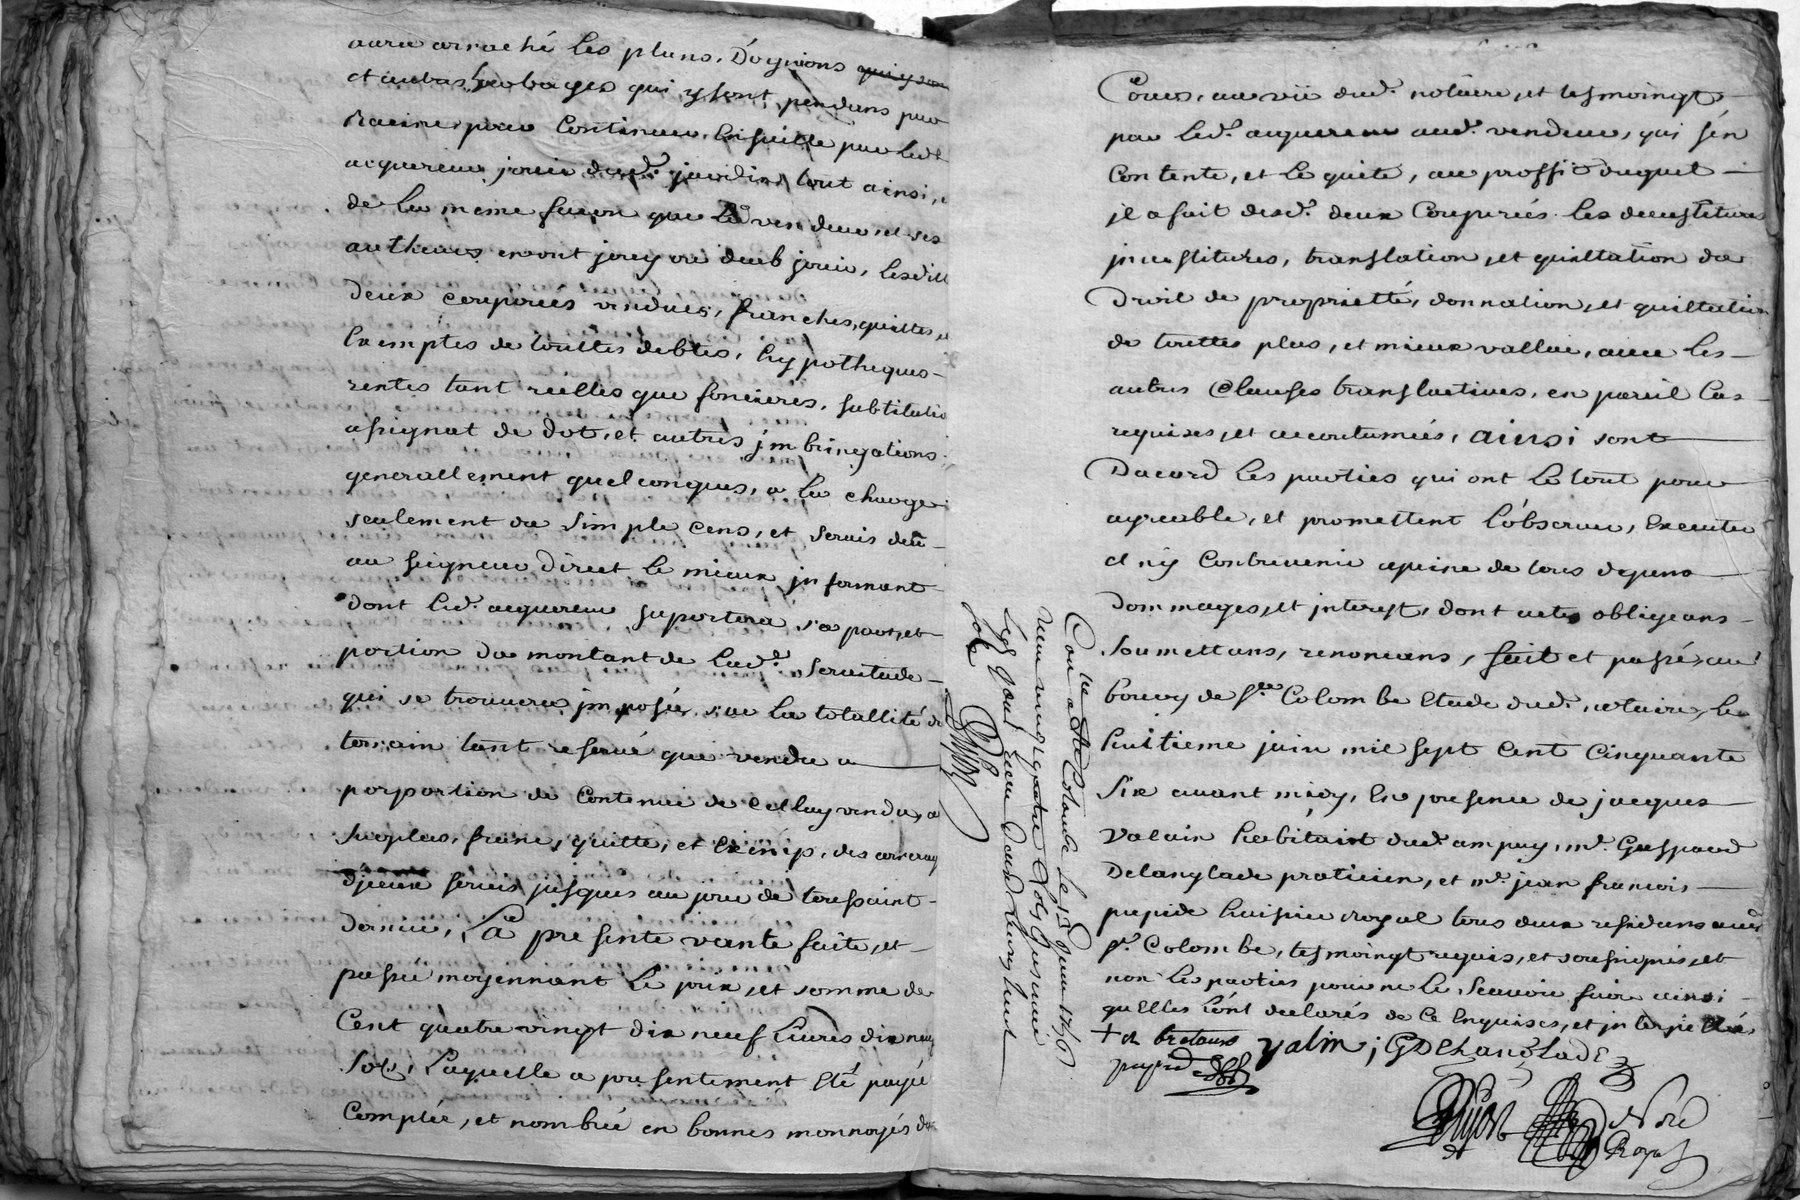 aura arraché les plans. D'oignions
et autres herbages qui y sont pendans par
Racine, pour Continuer Ensuitte par led.
acquereur jouir dud. jardin tout ainsi, 
de la meme facon que le vendeur et ses
autheurs en ont jouy ou deub jouir, lesditt
Deux couporées vendues, franches, quittes,
Exemptes de touttes debtes, hypotheques
rentes tant réelles que foncieres, subtitutio
assignat de dot, et autres jmbrigations
generallement quelconques, a la charge
seulement du simple cens, et servis deû
au seigneur Direct le mieux jnformant
dont led. acquereur suportera sa part, et
portion du montant de lad.e servitude
qui se trouvera jmposée sur la totallité du
terrain tant reservé que vendu a
porportion de Contenue de celluy vendu, a
surplus, franc, quitte, et Exémp. des arrerag
djceux servis jusques au jour de toussaint
Dernier, La presente vante faite, et
passée moyennant le prix, et somme de
Cent quatre vingt dix neuf Livres dix neuf
sols, Laquelle a presentement Eté payé
Comptée, et nombrée en bonnes monnoyés du
Cours, au vû dud. notaire, et tesmoingt
par led. acquereur aud. vendeur, qui s'en
Contente, et le quite, au proffit duquel
jl a fait desd. deux Couporées les devestitures
jnvestitures, translation, et quittation du
Droit de proprietté, donnation, et quittation
de touttes plus, et mieux vallue, avec les
autres Clauses translactives, en pareil Cas
requises, et accoutumées, ainsi sont
Dacord les parties qui ont le tout pour
agreable, et promettent l'observer, Executer
et n'y Contrevenir a peine de tous depens
dommages, et jnterest, dont actes obligeans
soumettans, renoncans, fait et passé au
bourg de S.te Colombe Etude dud. notaire, le
huitieme juin mil sept Cent Cinquante
Six avant midy, En presence de jacques
Valain habitant dud. ampuy, m.e Gaspard
Delanglade praticien, et m.e jean francois
pupide huissier royal tous deux residans aud.
S.te Colombe, tesmoingt requis, et soussignés, et
non les parties pour ne le Scavoir faire ainsi
quElles L'ont declarés de Ce Enquises, et jnterpellés
+ et bretaux valin ; GDELanglade
pupid
Dujon Nore
Royal
Con.lé a Ste Colombe Le 13 Juin 1756
Reçu vingt quatre sols